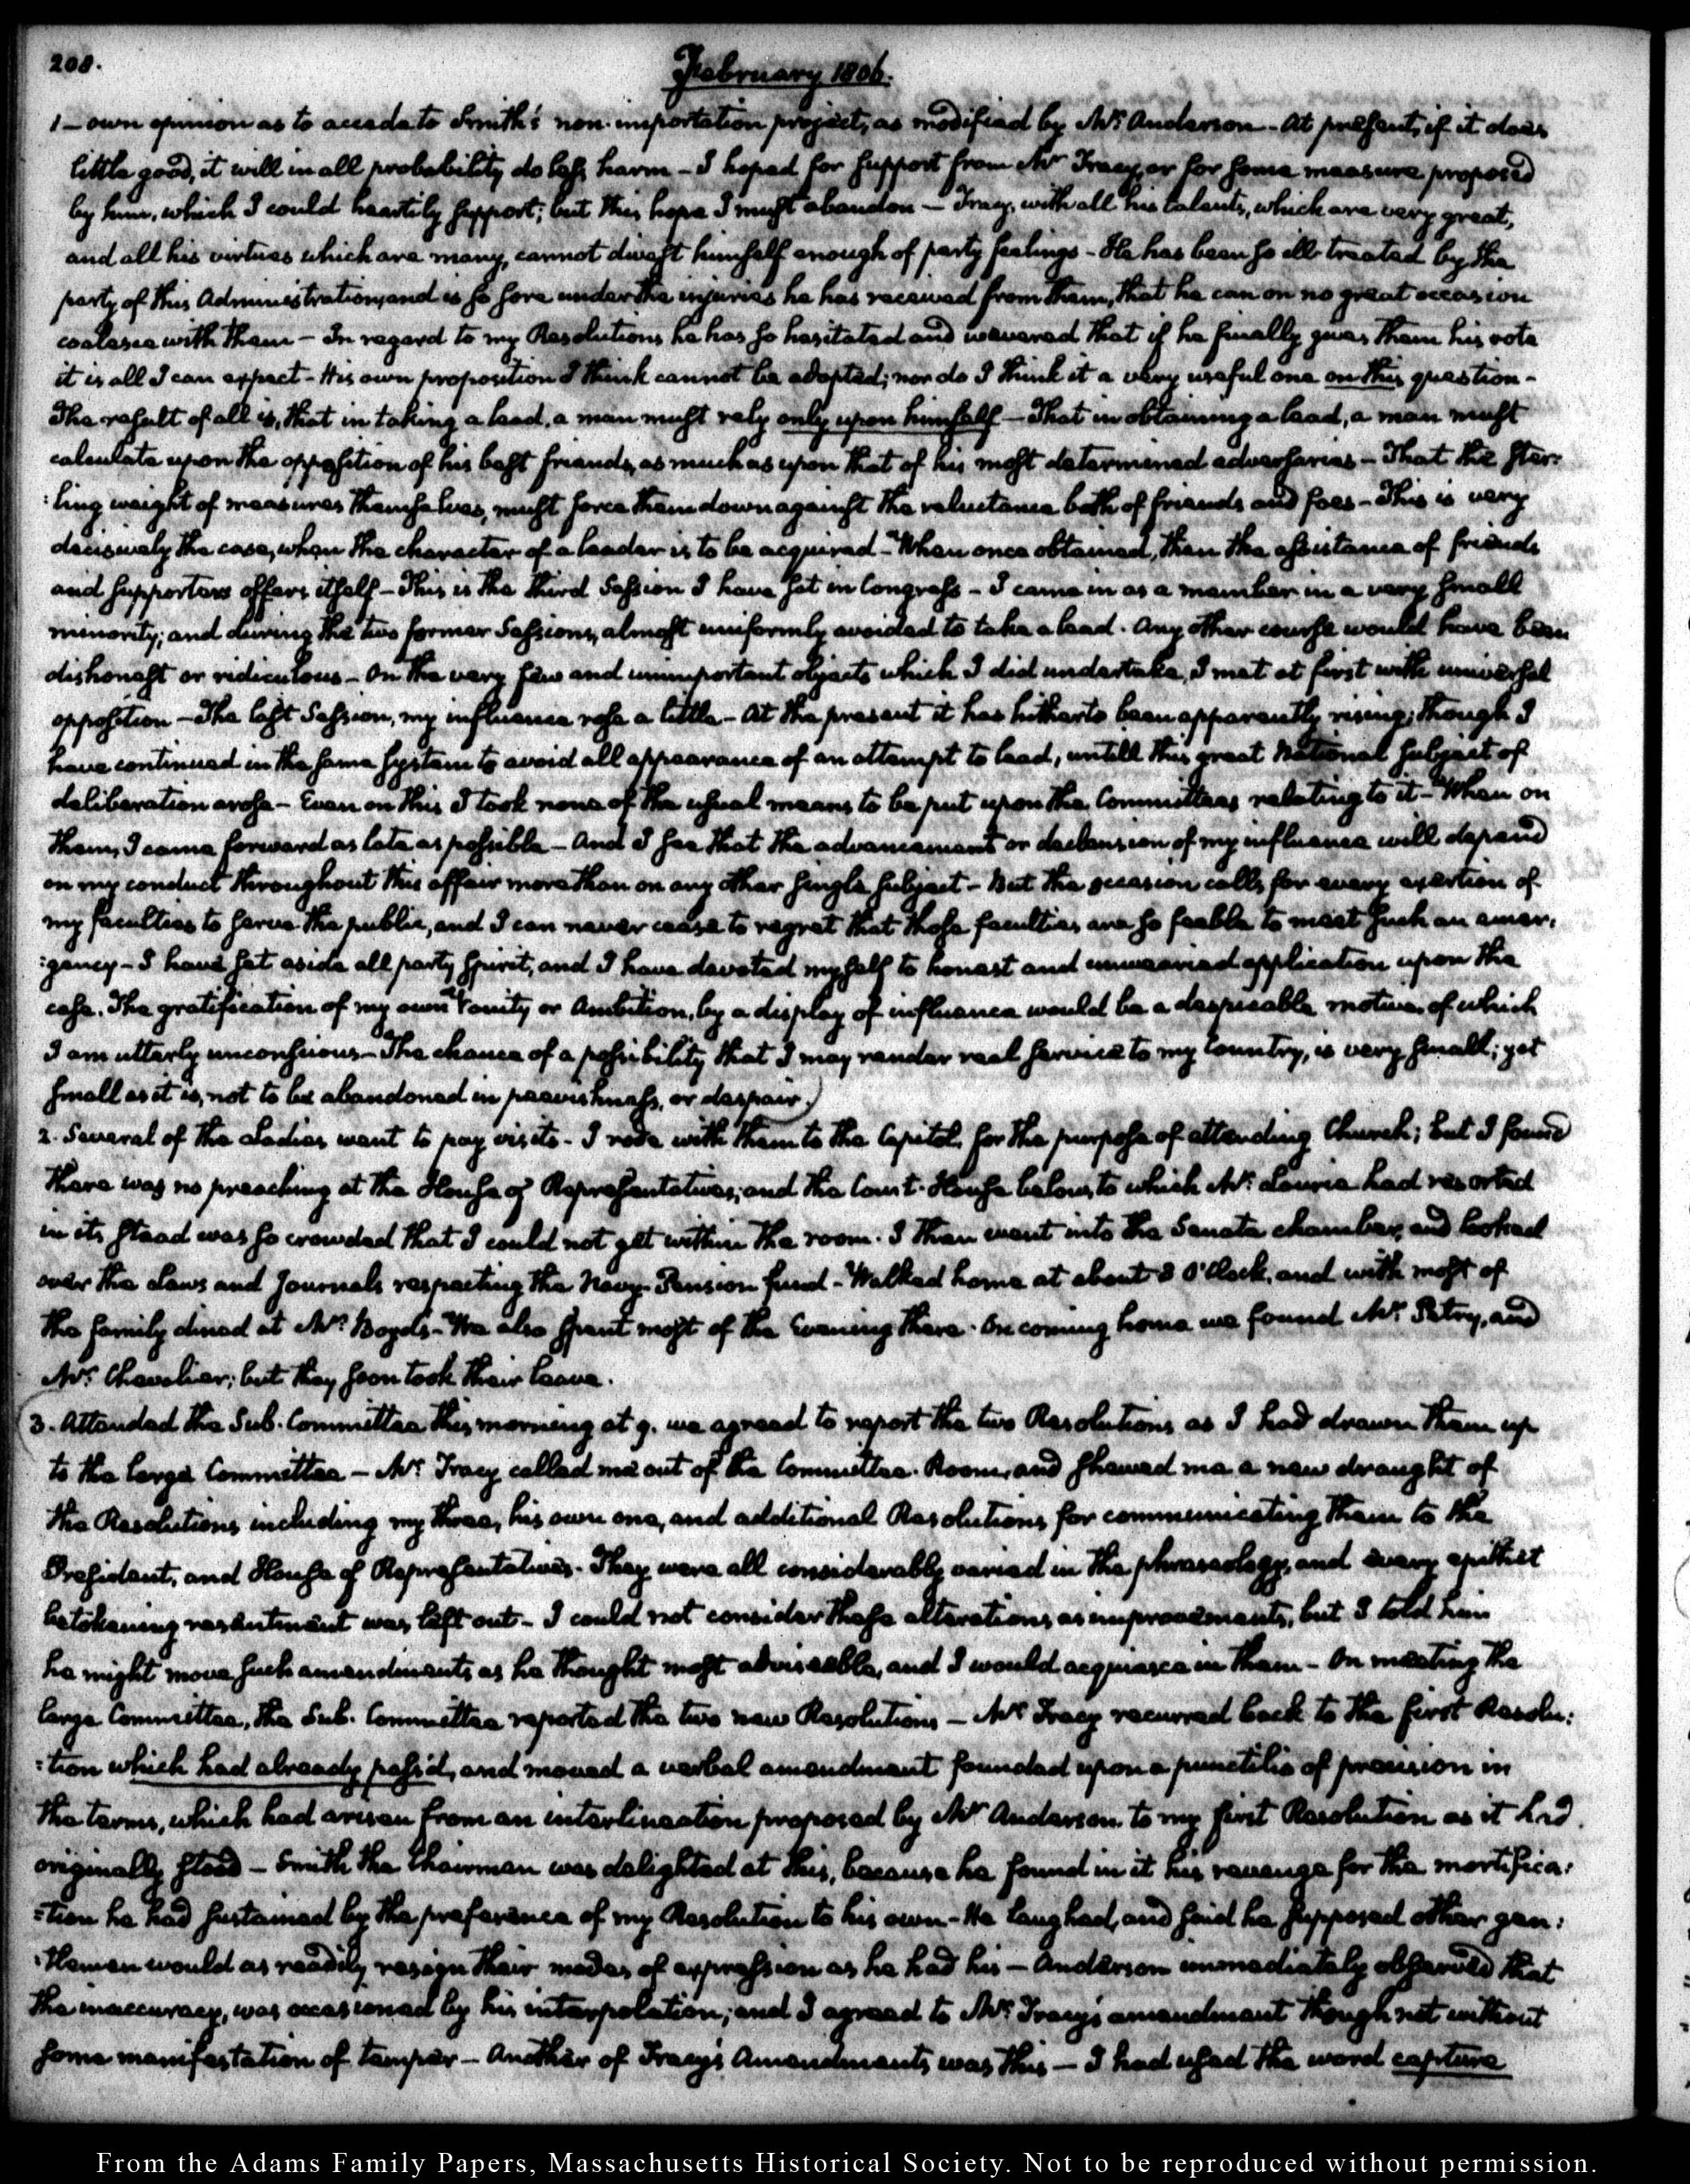 208.
February 1806.
1 - own opinion as to accede to Smith's non-importation project, as modified by Mr. Anderson - At present, if it does
little good, it will in all probability do less harm - I hoped for support from Mr Tracy, or for some measure proposed
by him, which I could heartily support; but this hope I must abandon - Tracy, with all his talents, which are very great,
and all his virtues which are many, cannot divest himself enough of party feelings - He has been so ill-treated by the
party of this Administration, and is so sore under the injuries he has received from them, that he can on no great occasion
coalesce with them - In regard to my Resolutions he has so hesitated and wavered that if he finally gives them his vote
it is all I can expect - His own proposition I think cannot be adopted; nor do I think it a very useful one on this question -
The result of all is, that in taking a lead, a man must rely only upon himself - That in obtaining a lead, a man must
calculate upon the opposition of his best friends, as much as upon that of his most determined adversaries - That the ster:
:ling weight of measures themselves, must force them down against the reluctance both of friends and foes - This is very
decisively the case, when the character of a leader is to be acquired - When once obtained, then the assistance of friends
and supporters offers itself - This is the third Session I have sat in Congress - I came in as a member in a very small
minority; and during the two former Sessions, almost uniformly avoided to take a lead. Any other course would have been
dishonest or ridiculous - On the very few and unimportant objects which I did undertake, I met at first with universal
opposition - The last Session, my influence rose a little - At the present it has hitherto been apparently rising; though I
have continued in the same system to avoid all appearance of an attempt to lead, untill this great National subject of
deliberation arose - Even on this I took none of the usual means to be put upon the Committees relating to it - When on
them, I came forward as late as possible - And I see that the advancement or declension of my influence will depend
on my conduct throughout this affair more than on any other single subject - But the occasion calls for every exertion of
my faculties to serve the public, and I can never cease to regret that those faculties are so feeble to meet such an emer:
:gency - I have set aside all party spirit, and I have devoted myself to honest and unwearied application upon the
case. The gratification of my own Vanity or Ambition, by a display of influence would be a despicable motive, of which
I am utterly unconscious - The chance of a possibility that I may render real service to my Country, is very small; yet
small as it is, not to be abandoned in peevishness, or despair.)
2. Several of the Ladies went to pay visits - I rode with them to the Capitol, for the purpose of attending Church; but I found
there was no preaching at the House of Representatives; and the Court-House below, to which Mr. Laurie had resorted
in its stead was so crowded that I could not get within the room. I then went into the Senate chamber, and looked
over the Laws and Journals respecting the Navy-Pension fund - Walked home at about 3 O'Clock, and with most of
the family dined at Mr. Boyd's - We also spent most of the Evening there. On coming home we found Mr. Petry, and
Mr. Chevalier; but they soon took their leave.
3. Attended the Sub-Committee this morning at 9. we agreed to report the two Resolutions as I had drawn them up
to the large Committee - Mr. Tracy called me out of the Committee-Room, and shewed me a new draught of
the Resolutions including my three, his own one, and additional Resolutions for communicating them to the
President, and House of Representatives. They were all considerably varied in the phraseology, and every epithet
betokening resentment was left out - I could not consider these alterations as improvements, but I told him
he might move such amendments as he thought most adviseable, and I would acquiesce in them - On meeting the
large Committee, the Sub-Committee reported the two new Resolutions - Mr. Tracy recurred back to the first Resolu:
:tion which had already pass'd, and moved a verbal amendment founded upon a punctilio of precision in
the terms, which had arisen from an interlineation proposed by Mr Anderson to my first Resolution as it had
originally stood - Smith the Chairman was delighted at this, because he found in it his revenge for the mortifica:
:tion he had sustained by the preference of my Resolution to his own - He laughed, and said he supposed other gen:
:tlemen would as readily resign their modes of expression as he had his - Anderson immediately observed that
the inaccuracy, was occasioned by his interpolation; and I agreed to Mr. Tracy's amendment though not without
some manifestation of temper - Another of Tracy's Amendments was this - I had used the word capture
From the Adams Family Papers, Massachusetts Historical Society. Not to be reproduced without permission.